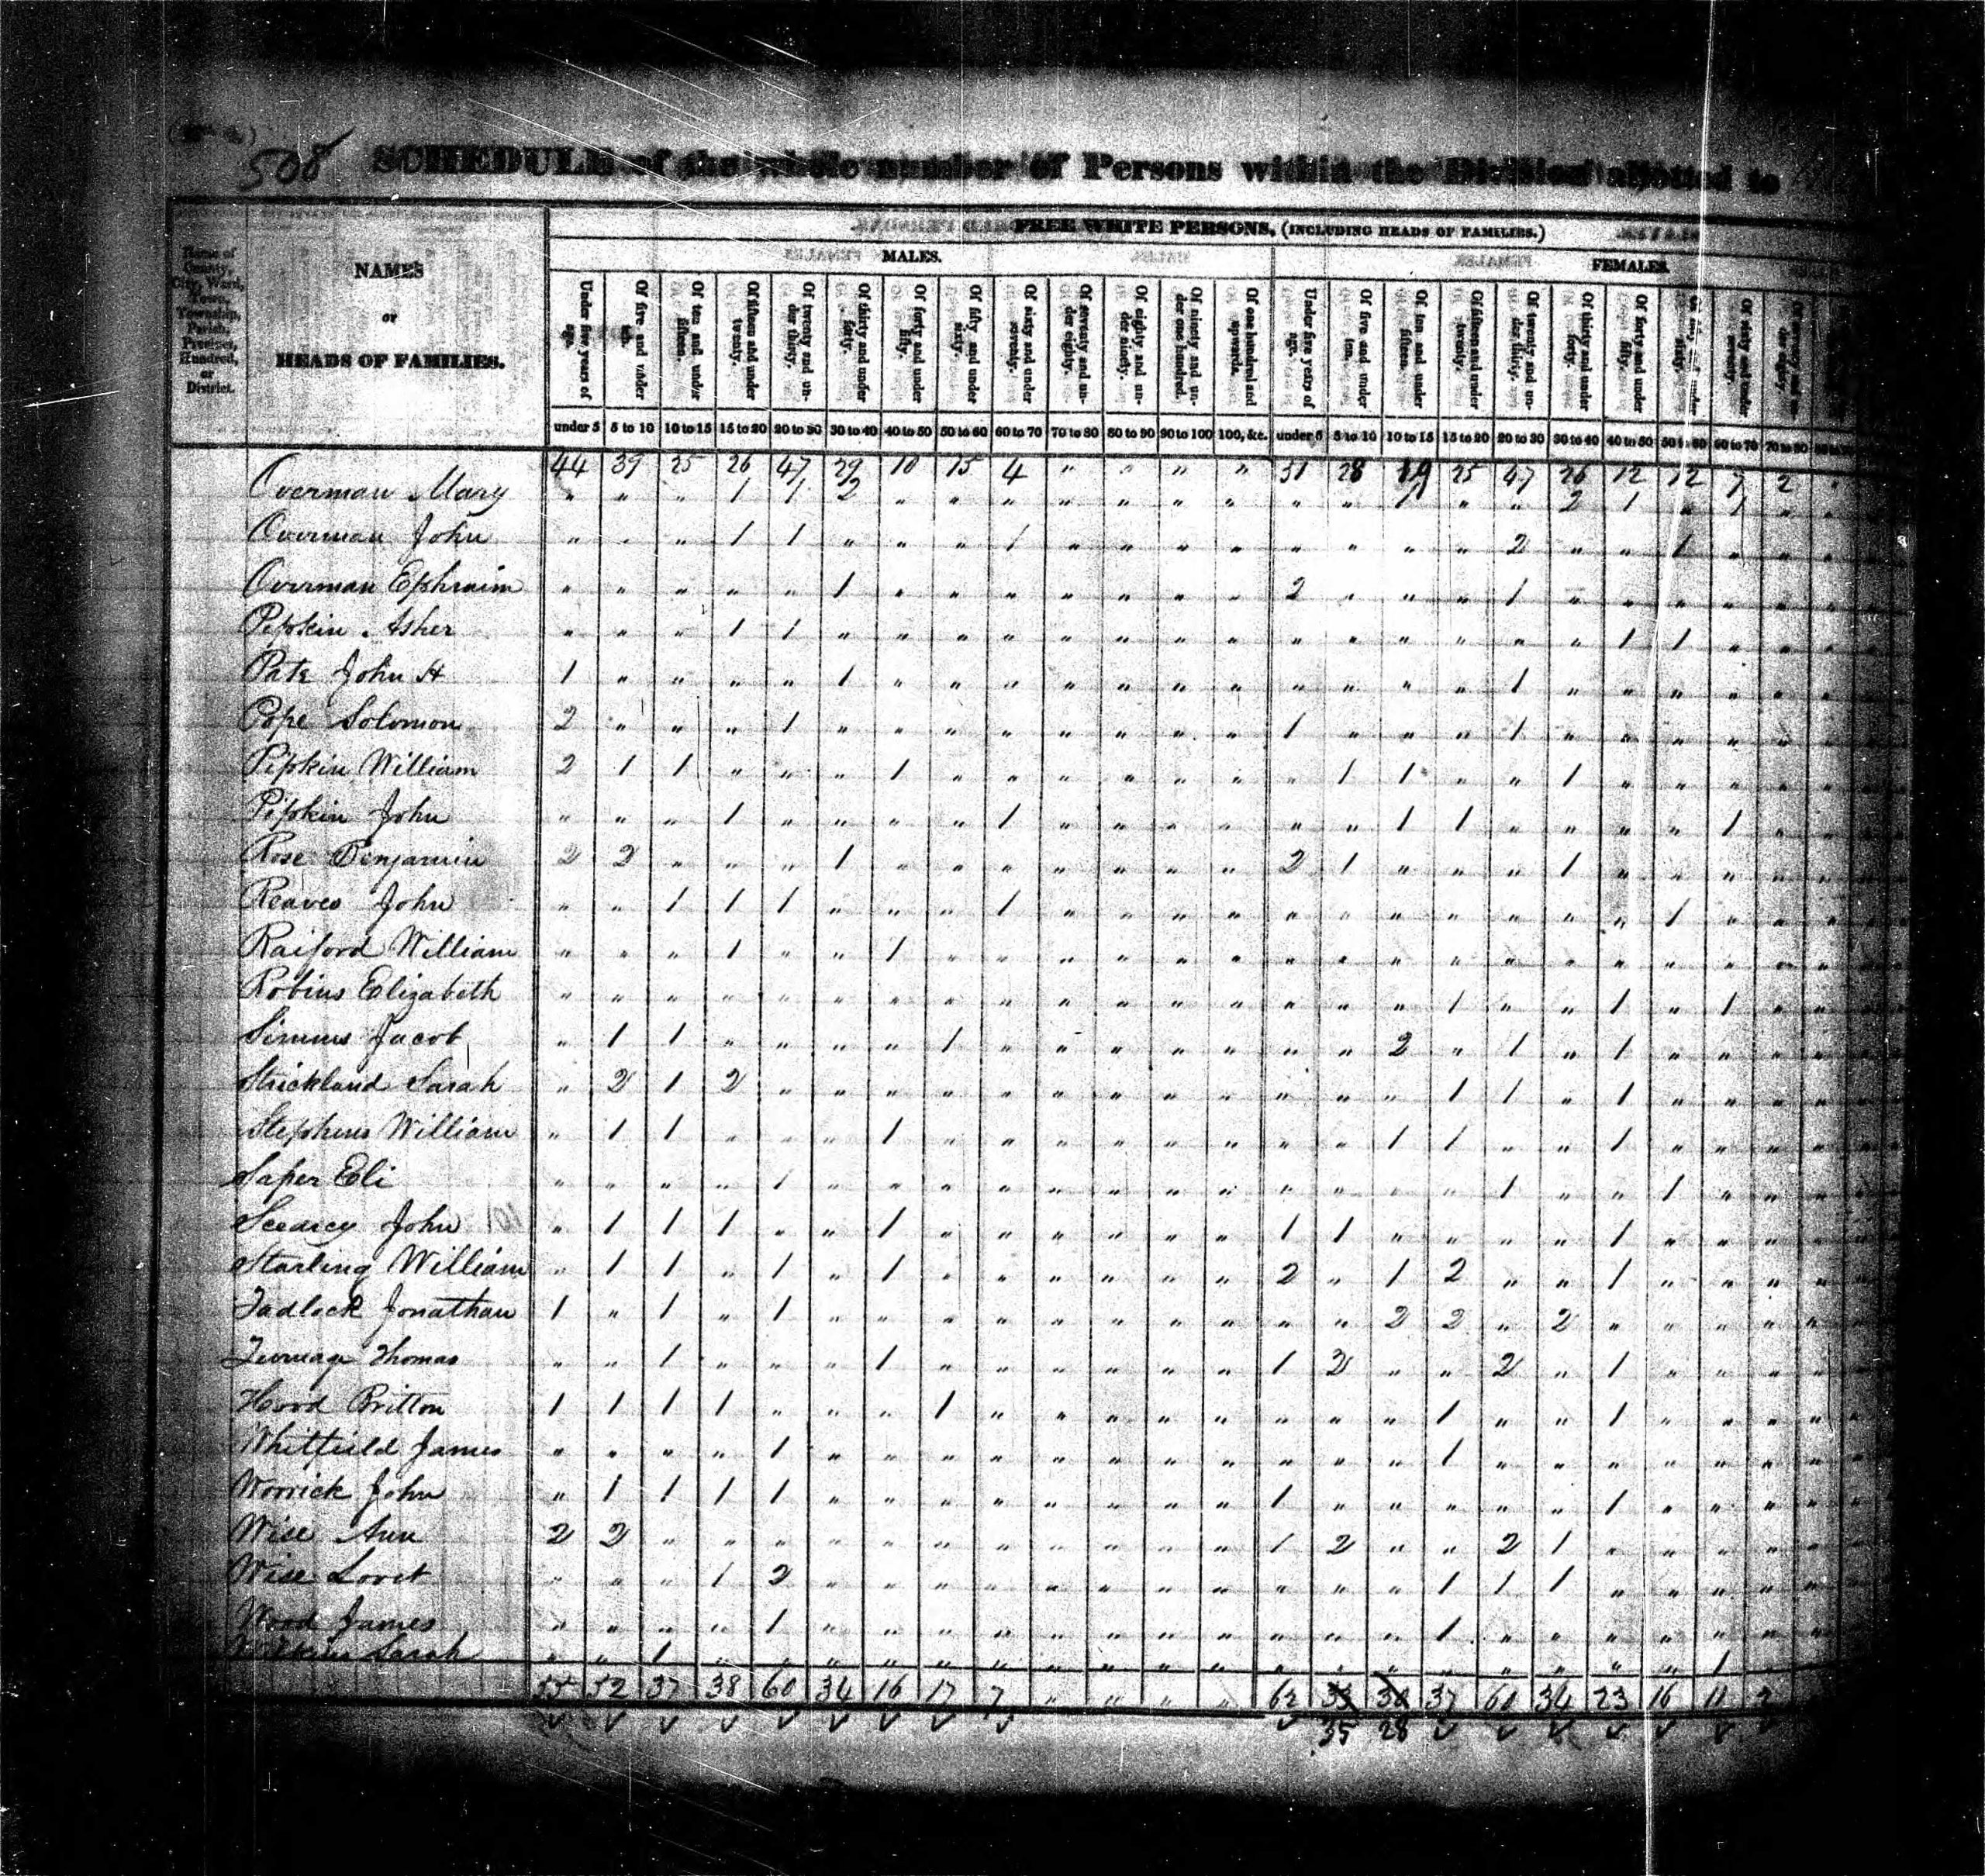 508 SCHEDULE of the whole number of Persons within the Division allotted to
FREE WHITE PERSONS, (INCLUDING HEADS OF FAMILIES.)
MALES. FEMALES.
Name of County, City, Ward, Town, Township, Parish, Precinct, Hundred, or District.
NAMES
or
HEADS OF FAMILIES.
Under five years of age. Of five and under ten. Of ten and under fifteen. Of fifteen and under twenty. Of twenty and under thirty. Of thirty and under forty. Of forty and under fifty. Of fifty and under sixty. Of sixty and under seventy. Of seventy and under eighty. Of eighty and under ninety. Of ninety and under one hundred. Of one hundred and upwards. Under five years of age. Of five and under ten. Of ten and under fifteen. Of fifteen and under twenty. Of twenty and under thirty. Of thirty and under forty. Of forty and under fifty.
under 5 5 to 10 10 to 15 15 to 20 20 to 30 30 to 40 40 to 50 50 to 60 60 to 70 70 to 80 80 to 90 90 to 100 100, &c. under 5 5 to 10 10 to 15 15 to 20 20 to 30 30 to 40 40 to 50 50 to 60 60 to 70 70 to 80
44 39 25 26 47 29 10 15 4 " " " " 51 28 19 25 47 26 12 12 7 2
Overman Mary " " " 1 1 2 " " " " " " " " " 1 " " 2 1 " 1 "
Overman John " " " 1 1 " " " 1 " " " " " " " " 2 " " 1 " "
Overman Ephraim " " " " " 1 " " " " " " " 2 " " " 1 " " " " "
Pipkin Asher " " " 1 1 " " " " " " " " " " " " " " 1 1 " "
Pate John H 1 " " " " 1 " " " " " " " " " " " 1 " " " " "
Pope Solomon 2 " " " 1 " " " " " " " " 1 " " " 1 " " " " "
Pipkin William 2 1 1 " " " 1 " " " " " " " 1 1 " " 1 " " " "
Pipkin John " " " 1 " " " " 1 " " " " " " 1 1 " " " " 1 "
Rose Benjamin 2 2 " " " 1 " " " " " " " 2 1 " " " 1 " " " "
Reaves John " " 1 1 1 " " " 1 " " " " " " " " " " " 1 " "
Raiford William " " " 1 " " 1 " " " " " " " " " " " " " " " "
Robins Elizabeth " " " " " " " " " " " " " " " " 1 " " 1 " 1 "
Simms Jacob " 1 1 " " " " 1 " " " " " " " 2 " 1 " 1 " " "
Strickland Sarah " 2 1 2 " " " " " " " " " " " " 1 1 " 1 " " "
Stephens William " 1 1 " " " 1 " " " " " " " " 1 1 " " 1 " " "
Saper Eli " " " " 1 " " " " " " " " " " " " 1 " " 1 " "
Scearcy John " 1 1 1 " " 1 " " " " " " 1 1 " " " " 1 " " "
Starling William " 1 1 " 1 " 1 " " " " " " 2 " 1 2 " " 1 " " "
Tadlock Jonathan 1 " 1 " 1 " " " " " " " " " " 2 2 " 2 " " " "
Turnage Thomas " " 1 " " " 1 " " " " " " 1 2 " " 2 " 1 " " "
Hood Britton 1 1 1 1 " " " 1 " " " " " " " " 1 " " 1 " " "
Whitfield James " " " " 1 " " " " " " " " " " " 1 " " " " " "
Worrick John " 1 1 1 1 " " " " " " " " 1 " " " " " 1 " " "
Wise Ann 2 2 " " " " " " " " " " " 1 2 " " 2 1 " " " "
Wise Lovet " " " 1 2 " " " " " " " " " " " 1 1 1 " " " "
Wood James " " " " 1 " " " " " " " " " " " 1 " " " " " "
Sarah " " 1 " " " " " " " " " " " " " " " " " " 1 "
55 52 37 38 60 34 16 17 7 " " " " 62 33 30 37 60 34 23 16 11 2
35 28